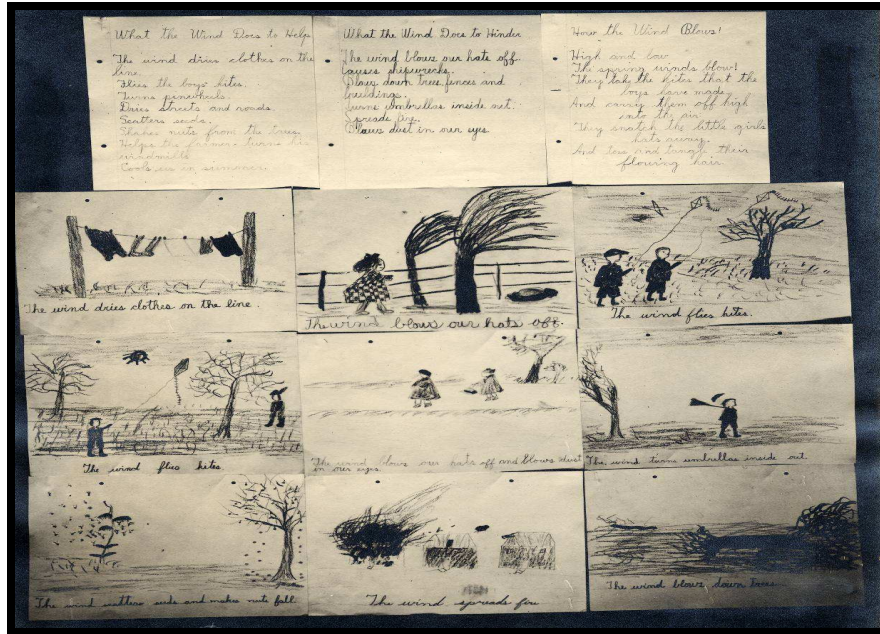 What the Wind Does to Help
The wind dries clothes on the
line.
Flies the boys' kites.
Turns pinwheels.
Dries streets and roads.
Scatters seeds.
Shakes nuts from the trees.
Helps the farmer - turns his
windmills
Cools us in summer.
What the Wind Does to Hinder
The wind blows our hats off.
Causes shipwrecks.
Blows down trees, fences and
buildings.
Turns umbrellas inside out.
Spreads fire.
Blows dust in our eyes.
How the Wind Blows!
High and low
The spring winds blow!
They take the kites that the
boys have made,
And carry them off high
into the air
They snatch the little girls'
hats away,
And toss and tangle their
flowing hair
The wind dries clothes on the line.
The wind blows our hats off.
The wind flies kites.
The wind flies kites.
The wind blows our hats off and blows dust
in our eyes.
The wind turns umbrellas inside out.
The wind scatters seeds and makes nuts fall
The wind spreads fire
The wind blows down trees